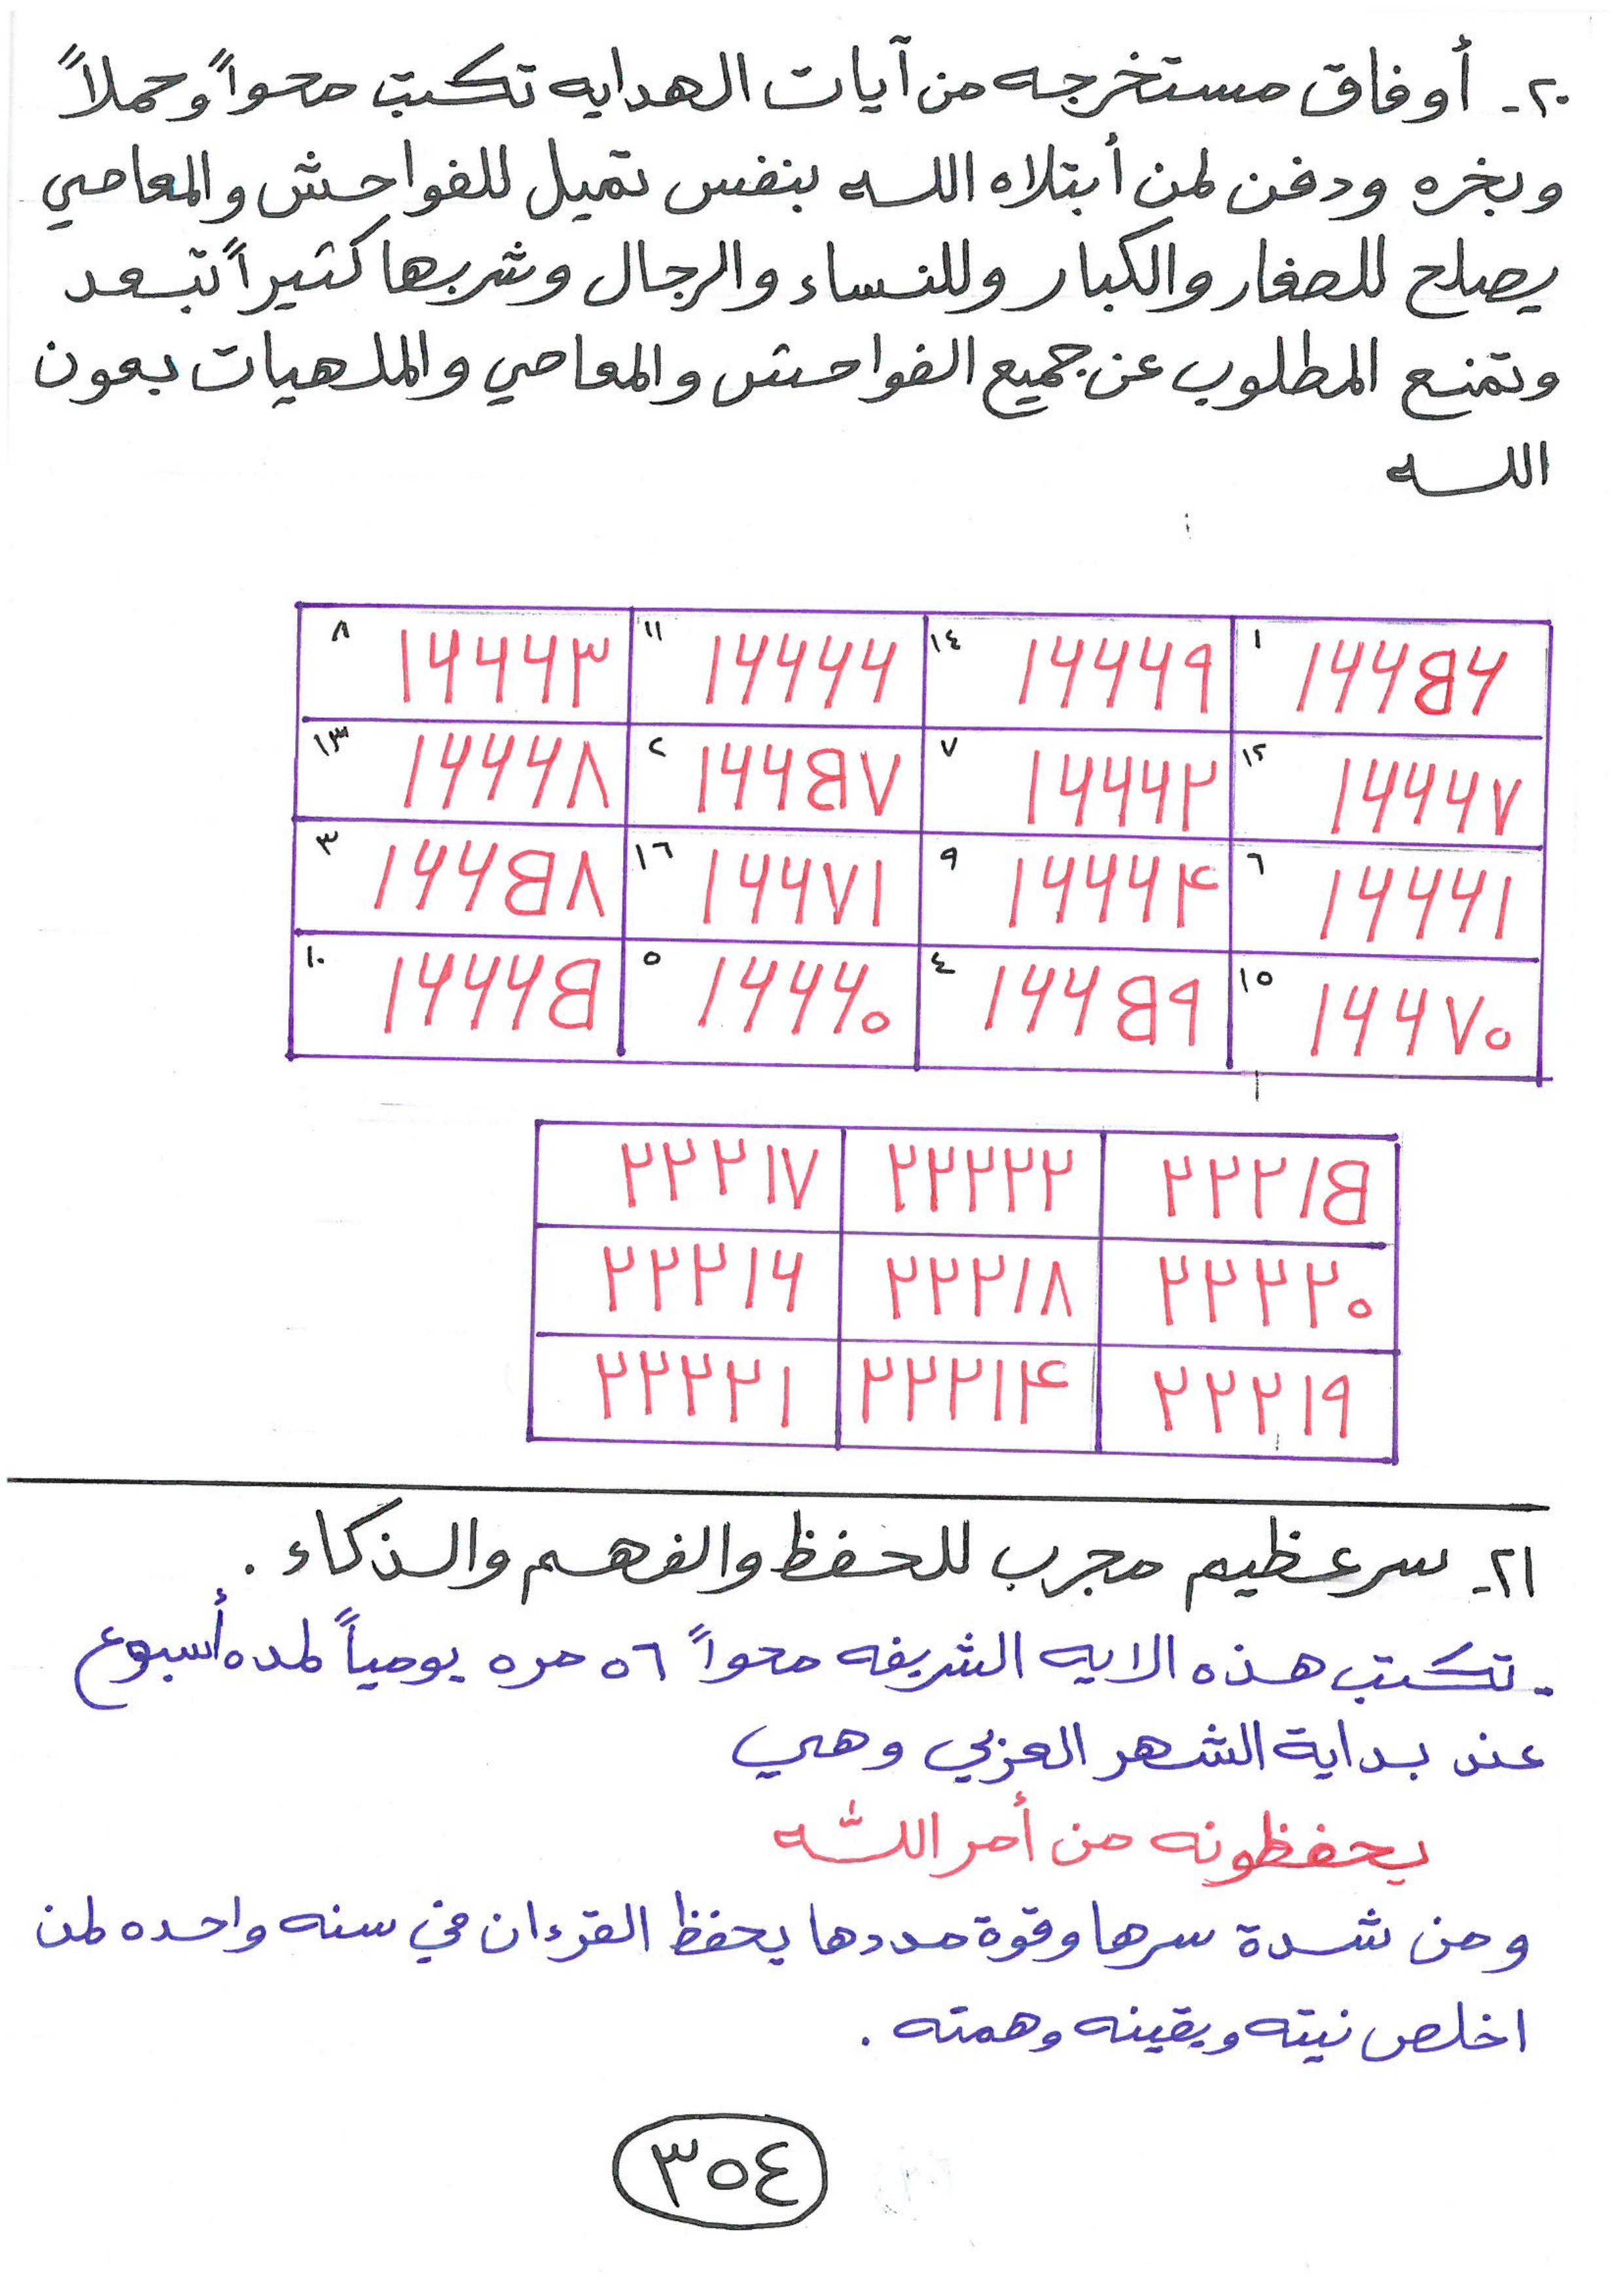 ٢٠- أوفاق مستخرجه من آيات الهدايه تكتب محواً وحملاً
وبخره ودفن لمن أبتلاه الله بنفس تميل للفواحش والمعاصي
يصلح للصغار والكبار وللنساء والرجال وشربها كثيراً تبعد
وتمنع المطلوب عن جميع الفواحش والمعاصي والملهيات بعون
الله
١ ١٦٦٥٦ ١٤ ١٦٦٦٩ ١١ ١٦٦٦٦ ٨ ١٦٦٦٣
١٢ ١٦٦٦٧ ٧ ١٦٦٦٢ ٢ ١٦٦٥٧ ١٣ ١٦٦٦٨
٦ ١٦٦٦١ ٩ ١٦٦٦٤ ١٦ ١٦٦٧١ ٣ ١٦٦٥٨
١٥ ١٦٦٧٠ ٤ ١٦٦٥٩ ٥ ١٦٦٦٠ ١٠ ١٦٦٦٥
٢٢٢١٥ ٢٢٢٢٢ ٢٢٢١٧
٢٢٢٢٠ ٢٢٢١٨ ٢٢٢١٦
٢٢٢١٩ ٢٢٢١٤ ٢٢٢٢١
٢١- سر عظيم مجرب للحفظ والفهم والذكاء .
- تكتب هذه الايه الشريفه محواً ٥٦ مره يومياً لمده أسبوع
عند بداية الشهر العربي وهي
يحفظونه من أمر الله
ومن شدة سرها وقوة مددها يحفظ القرءان في سنه واحده لمن
اخلص نيته ويقينه وهمته .
٣٥٤